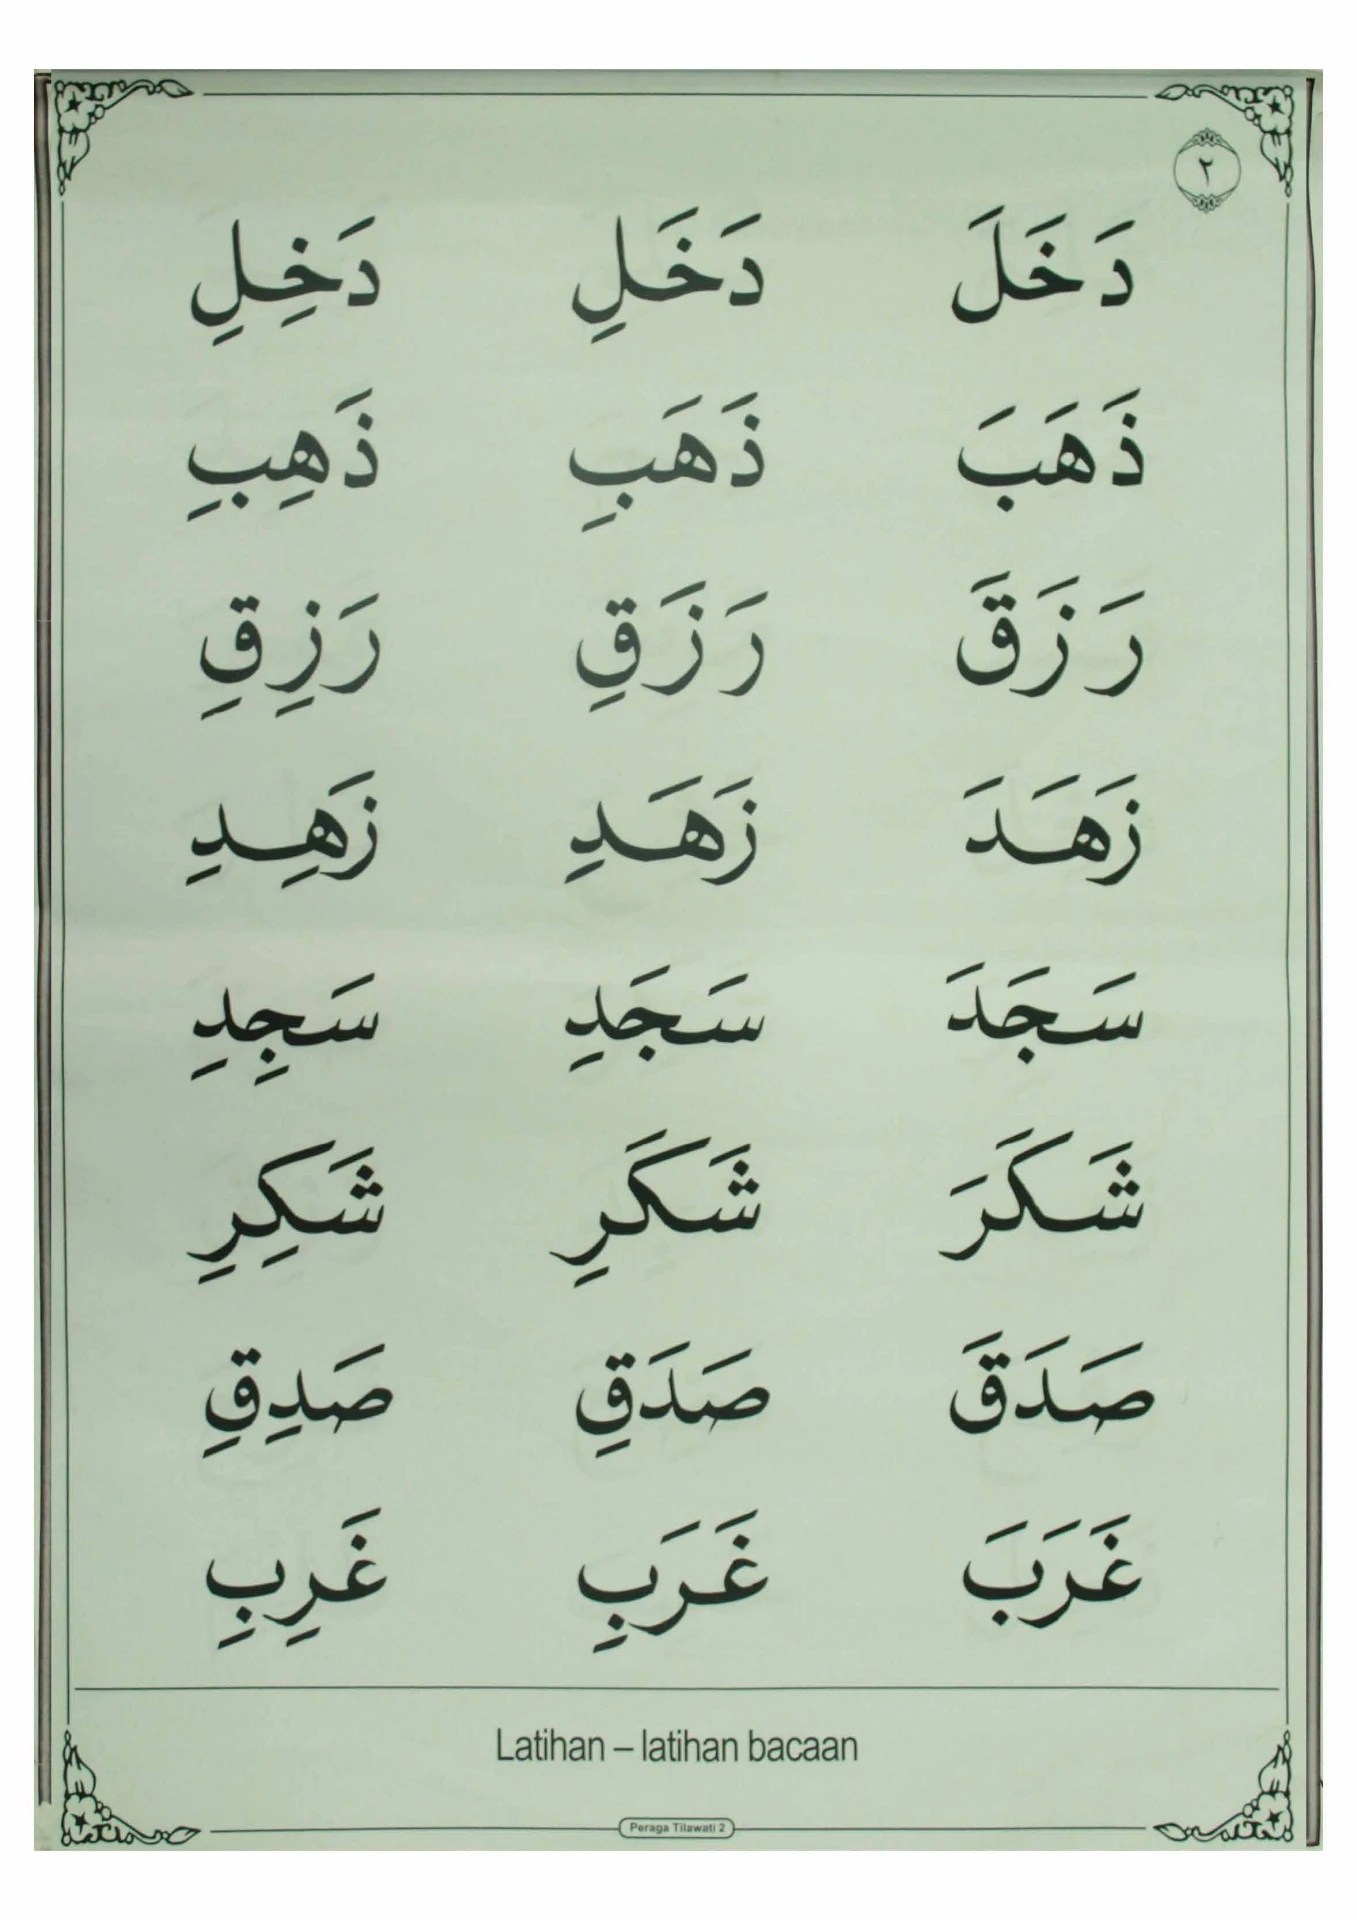 ٢
دَخَلَ دَخَلِ دَخِلِ
ذَهَبَ ذَهَبِ ذَهِبِ
رَزَقَ رَزَقِ رَزِقِ
زَهَدَ زَهَدِ زَهِدِ
سَجَدَ سَجَدِ سَجِدِ
شَكَرَ شَكَرِ شَكِرِ
صَدَقَ صَدَقِ صَدِقِ
غَرَبَ غَرَبِ غَرِبِ
Latihan – latihan bacaan
Peraga Tilawati 2